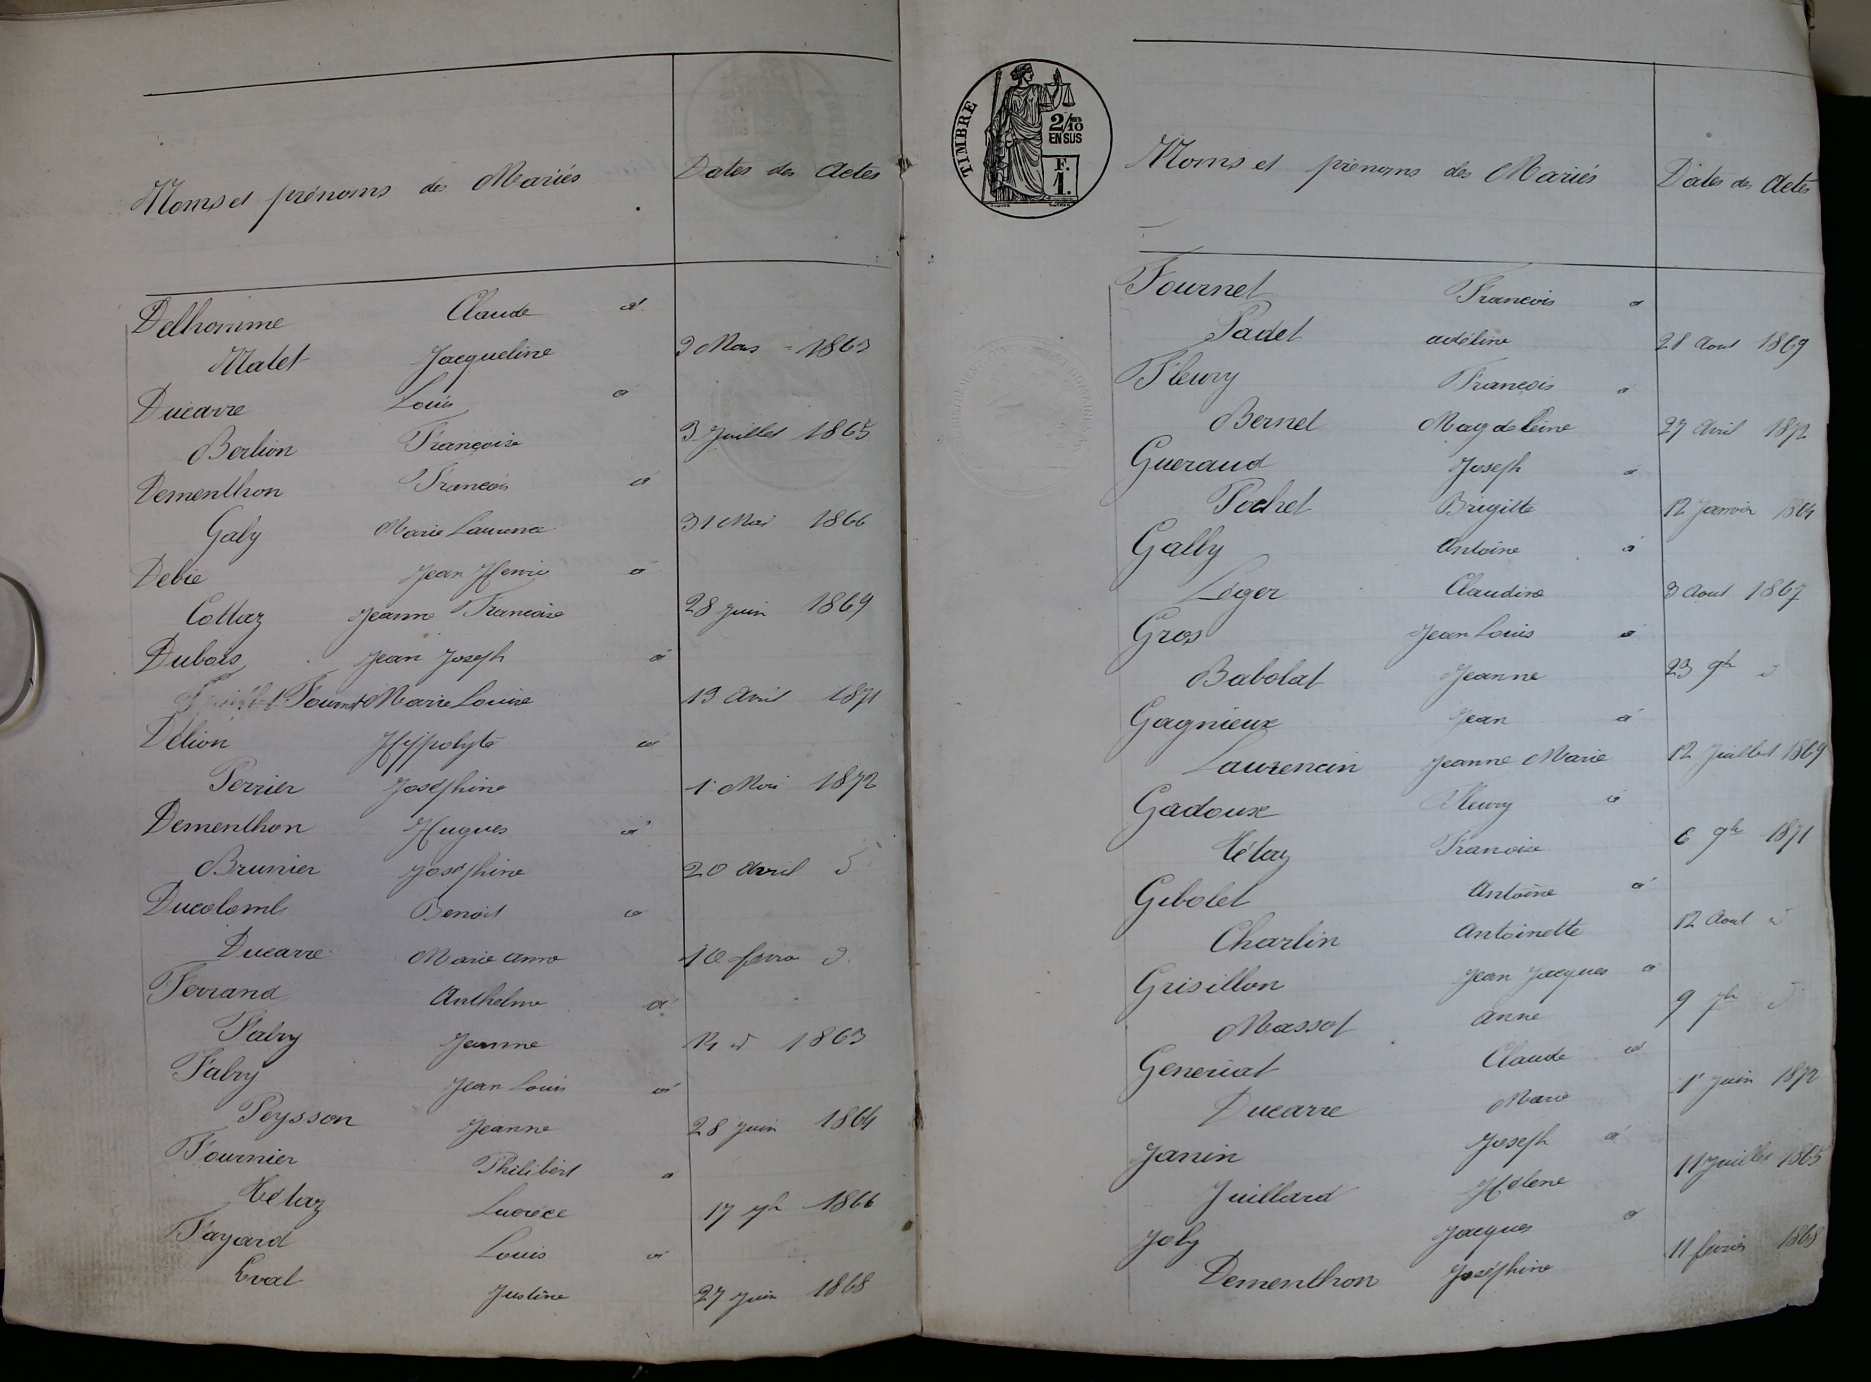 Noms et prénoms des Mariés Dates des Actes
Delhomme Claude à
Malet Jacqueline 3 Mars 1863
Ducarre Louis à
Berlion Françoise 3 Juillet 1865
Dementhon Francois à
Galy Marie Laurence 31 Mai 1866
Debie Jean Henri à
Cottaz Jeanne Francoise 28 juin 1869
Dubois Jean Joseph à
Fournet Marie Louise 13 Avril 1871
Délion Hyppolyte à
Perrier Joséphine 1 Mai 1872
Dementhon Hugues à
Brunier Joséphine 20 Avril d
Ducolomb Benoit à
Ducarre Marie Anne 10 fevrier d
Ferrand Anthelme à
Fabry Jeanne 14 d 1863
Fabry Jean Louis à
Peysson Jeanne 28 juin 1864
Fournier Philibert à
Hétaz Lucrèce 17 1866
Fayard Louis à
Evat Justine 27 juin 1868
TIMBRE
2/10
EN SUS
F.
1.
Noms et prénoms des Mariés Dates des Actes
Fournet Francois à
Padet adéline 28 Aout 1869
Fleury Francois à
Bernet Magdeleine 27 Avril 1872
Gueraud Joseph à
Pochet Brigitte 12 Janvier 1864
Gally Antoine à
Léger Claudine 3 Aout 1867
Gros Jean Louis à
Babolat Jeanne 23 9bre d
Gagnieux Jean à
Laurencin Jeanne Marie 12 Juillet 1869
Gadoux Fleury à
Hétaz Francoise 6 9bre 1871
Gibolet Antoine à
Charlin Antoinette 12 Aout d
Grisillon Jean Jacques à
Massot Anne 9 d
Generiat Claude à
Ducarre Marie 1r Juin 1872
Janin Joseph à
Juillard Hélène 11 Juillet 1865
Joly Jacques à
Dementhon Joséphine 11 fevrier 1868